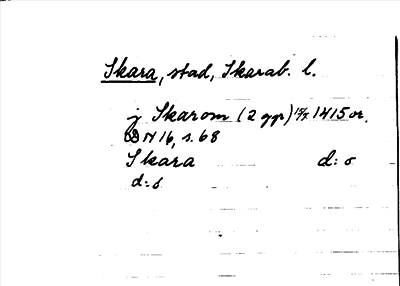 Skara, stad, Skarab. l.
j Skarom (2 ggr) 15/7 1415 or.
N 16, s. 68
Skara d:o
d:o